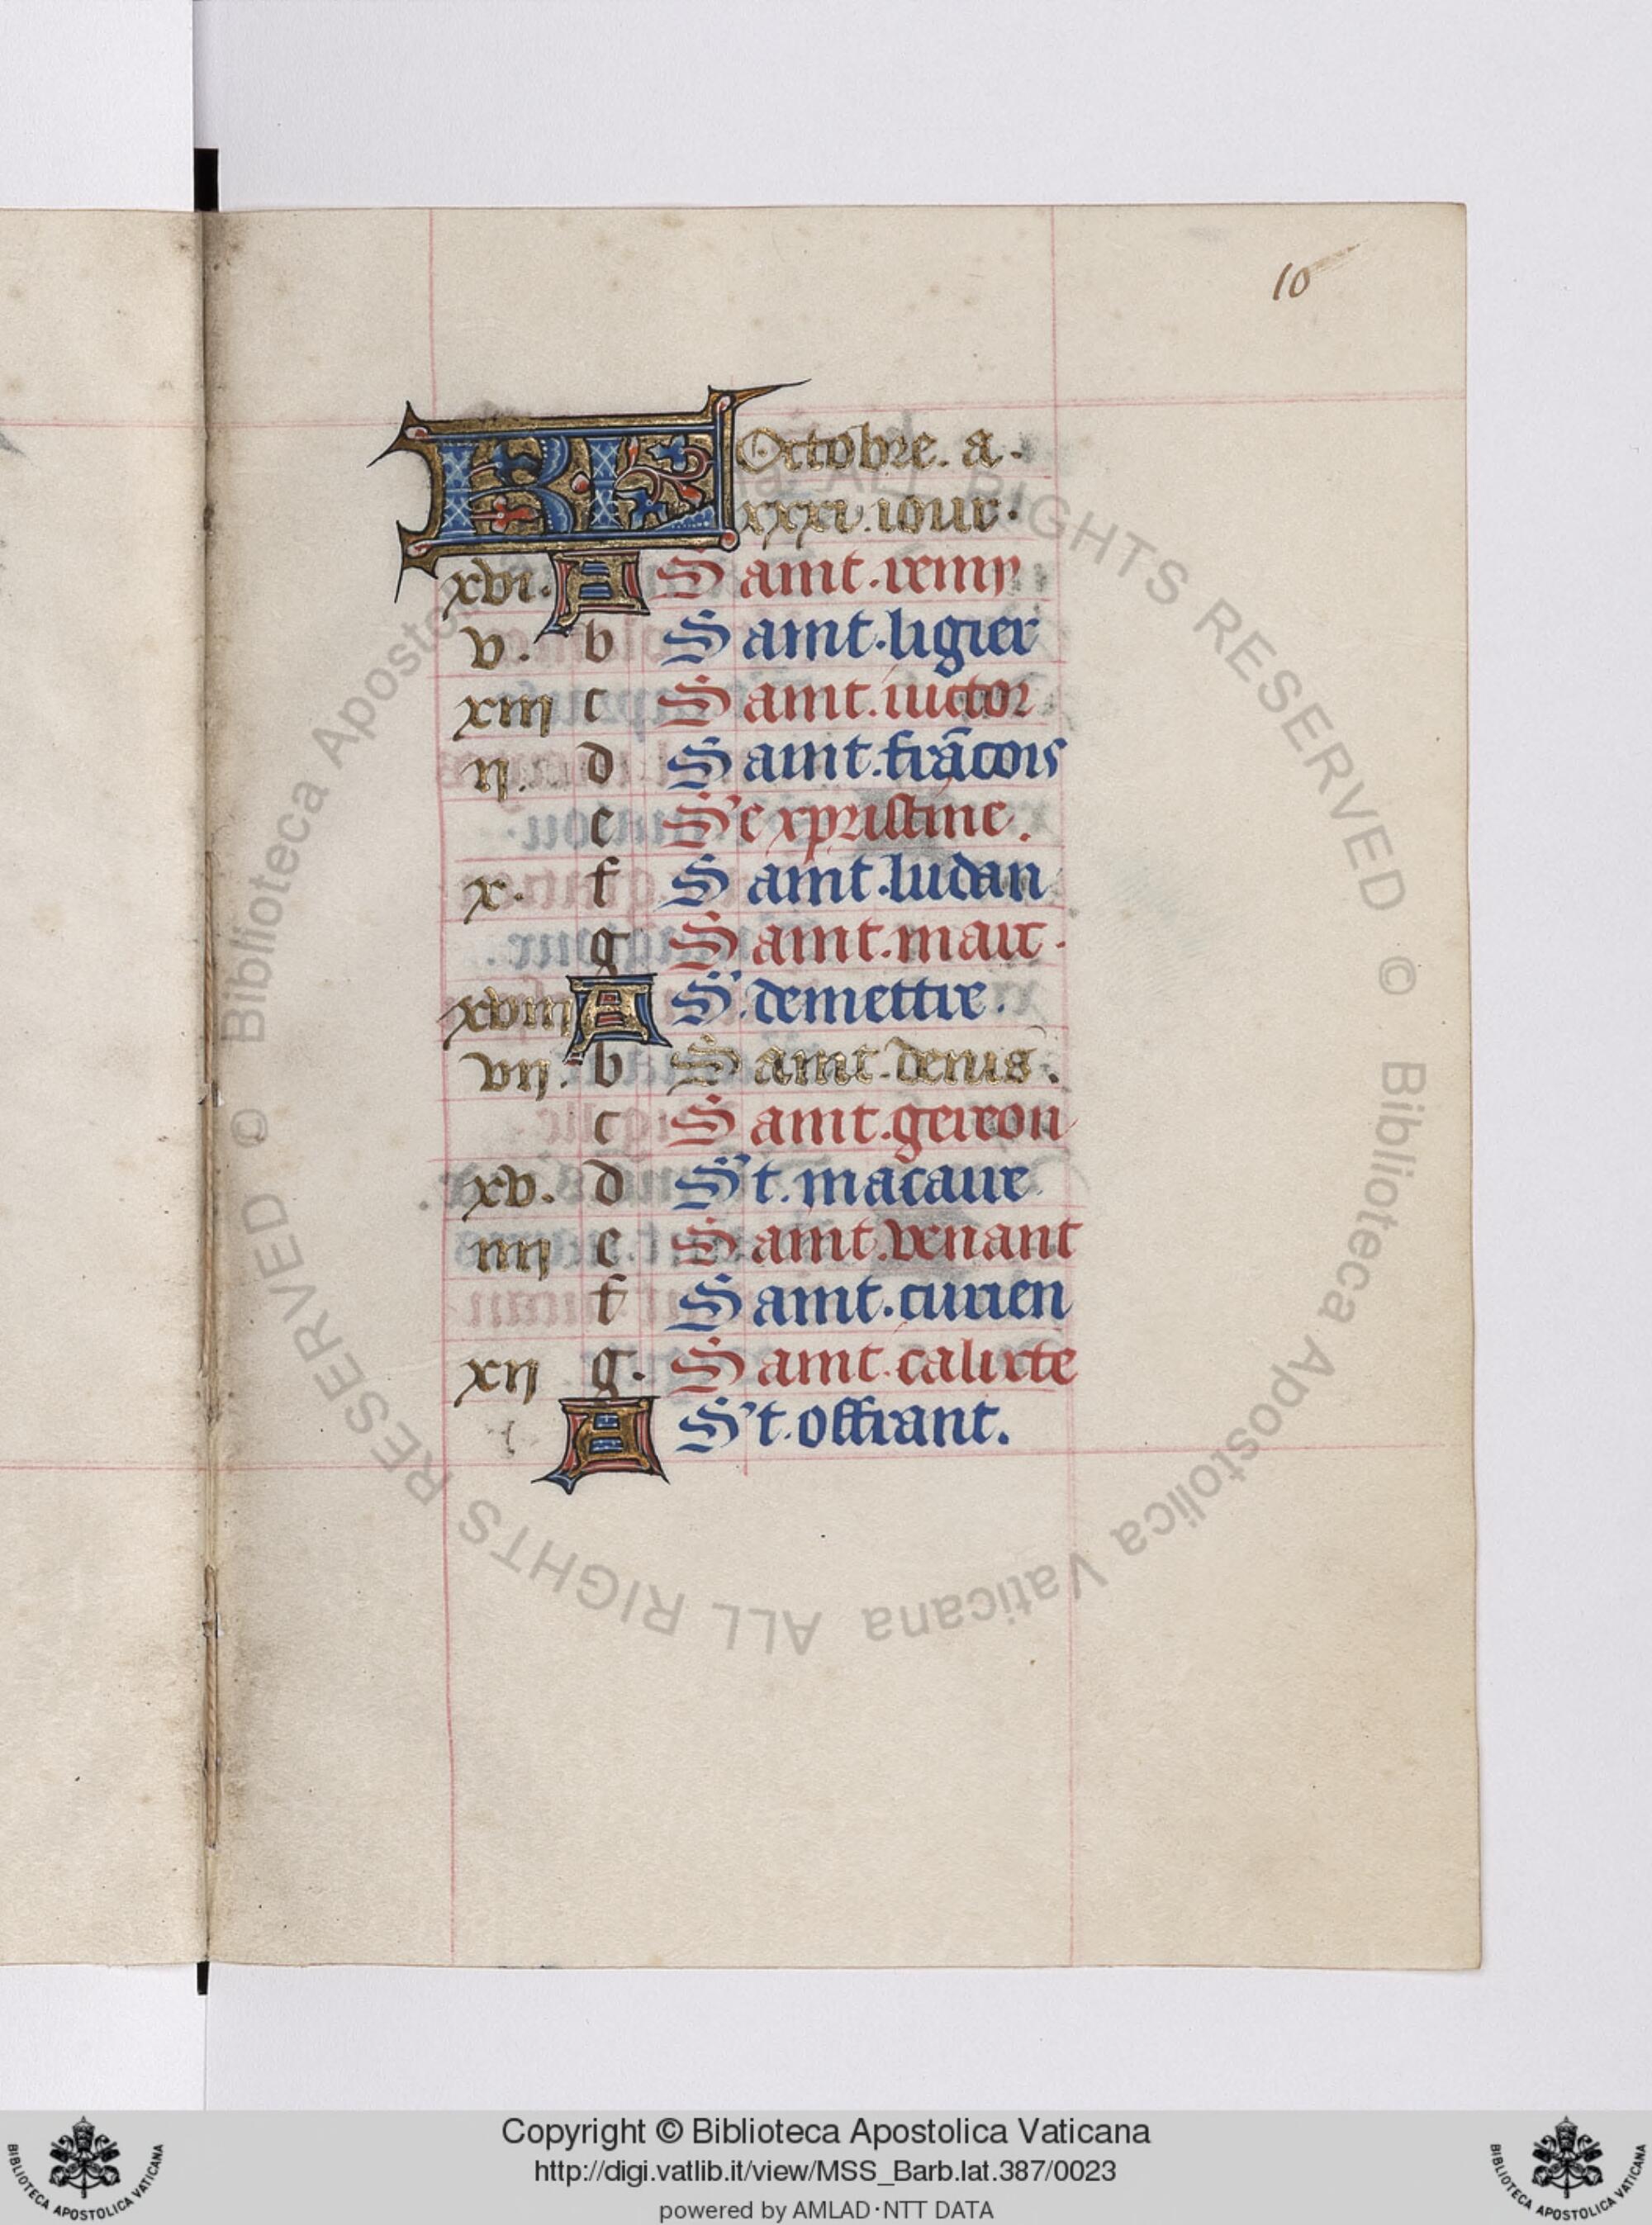 10
KL Octobre. a.
xxxi. iour.
xvi. A Saint. remy
v. b Saint. ligier
xiij c Saint. uictor
ij. d Saint. frācois
e S'e xpristine.
x. f Saint. ludan
g Saint. marc.
xviij A S'. demettre.
vij. b Saint. denis.
c Saint. gereon
xv. d S't. macaire
iiij e Saint. venant
f Saint. curien
xij g. Saint. calixte
A S't. offrant.
© Biblioteca Apostolica Vaticana ALL RIGHTS RESERVED © Biblioteca Apostolica Vaticana ALL RIGHTS RESERVED
Copyright © Biblioteca Apostolica Vaticana
http://digi.vatlib.it/view/MSS_Barb.lat.387/0023
powered by AMLAD·NTT DATA
BIBLIOTECA APOSTOLICA VATICANA
BIBLIOTECA APOSTOLICA VATICANA